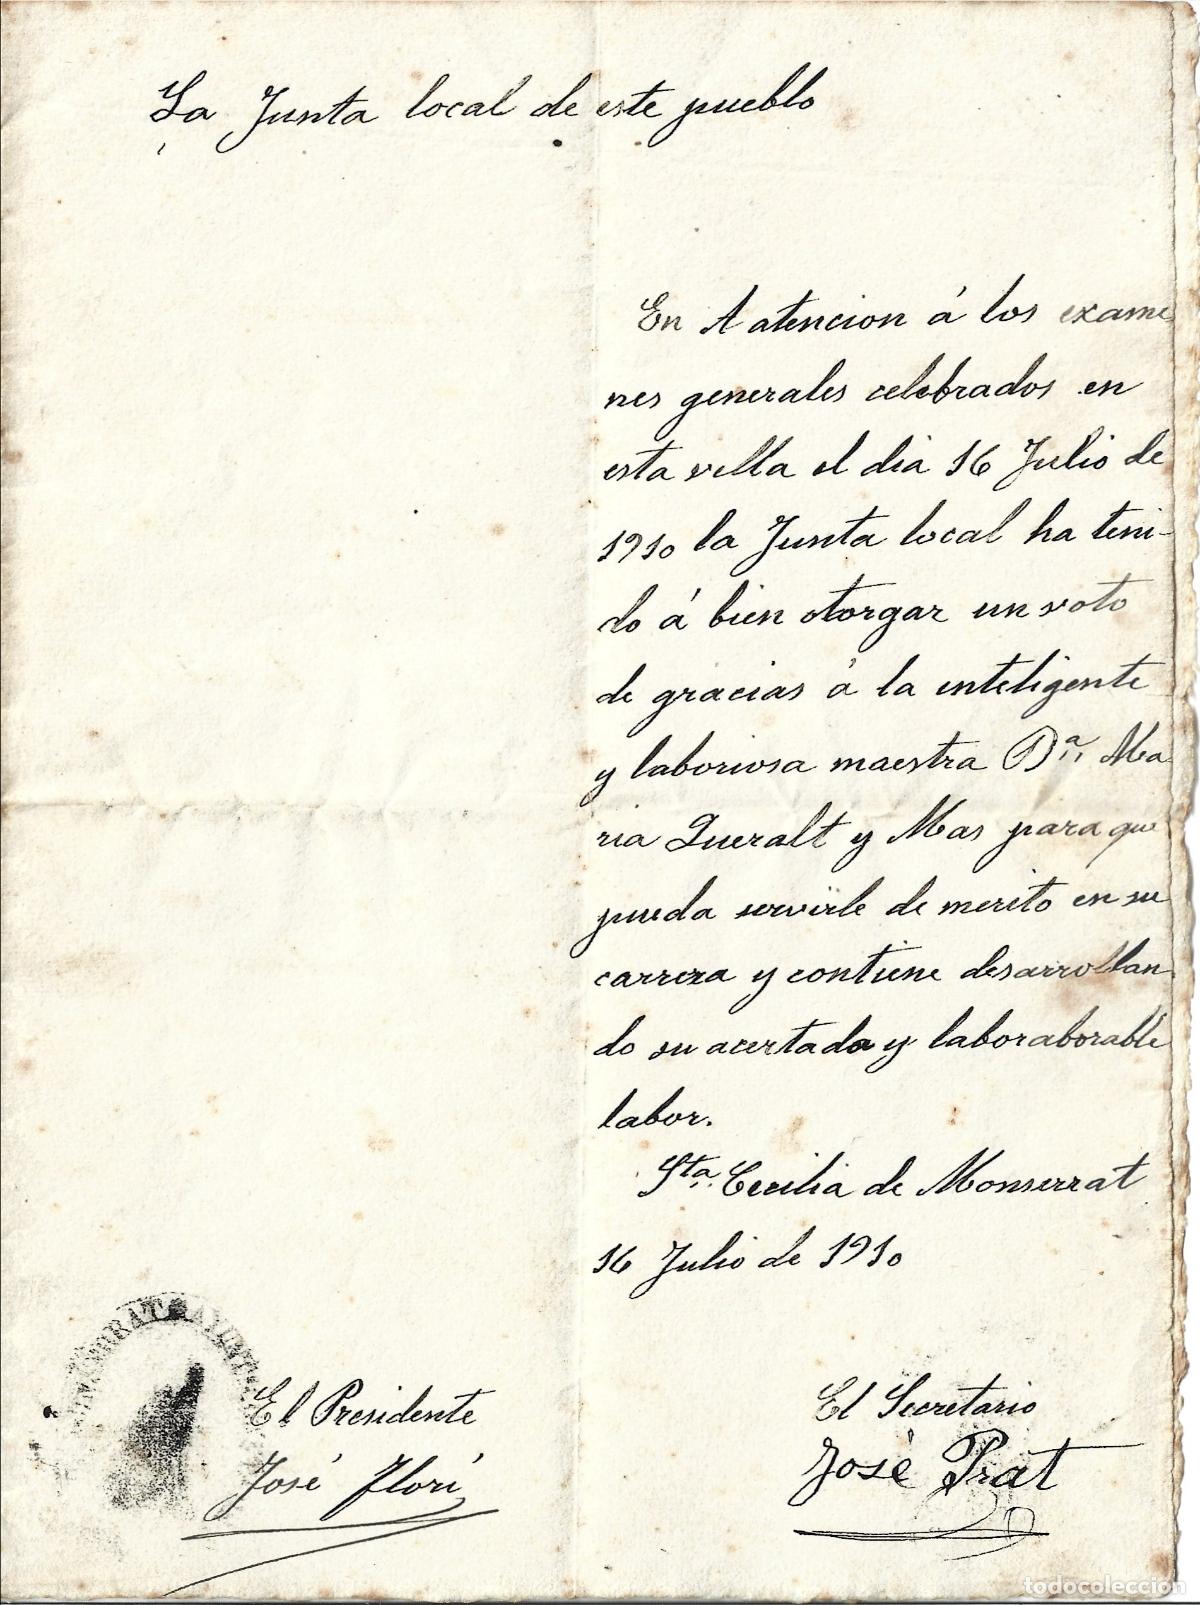 La Junta local de este pueblo
En A atencion á los exame
nes generales celebrados en
esta villa el dia 16 Julio de
1910 la Junta local ha teni-
do á bien otorgar un voto
de gracias á la inteligente
y laboriosa maestra Dª. Ma
ria Queralt y Mas para que
pueda servirle de merito en su
carrera y contiene desarrollan
do su acertada y laboraborable
labor.
Sta. Cecilia de Monserrat
16 Julio de 1910
El Presidente
José Florí
El Secretario
José Prat
todocoleccion